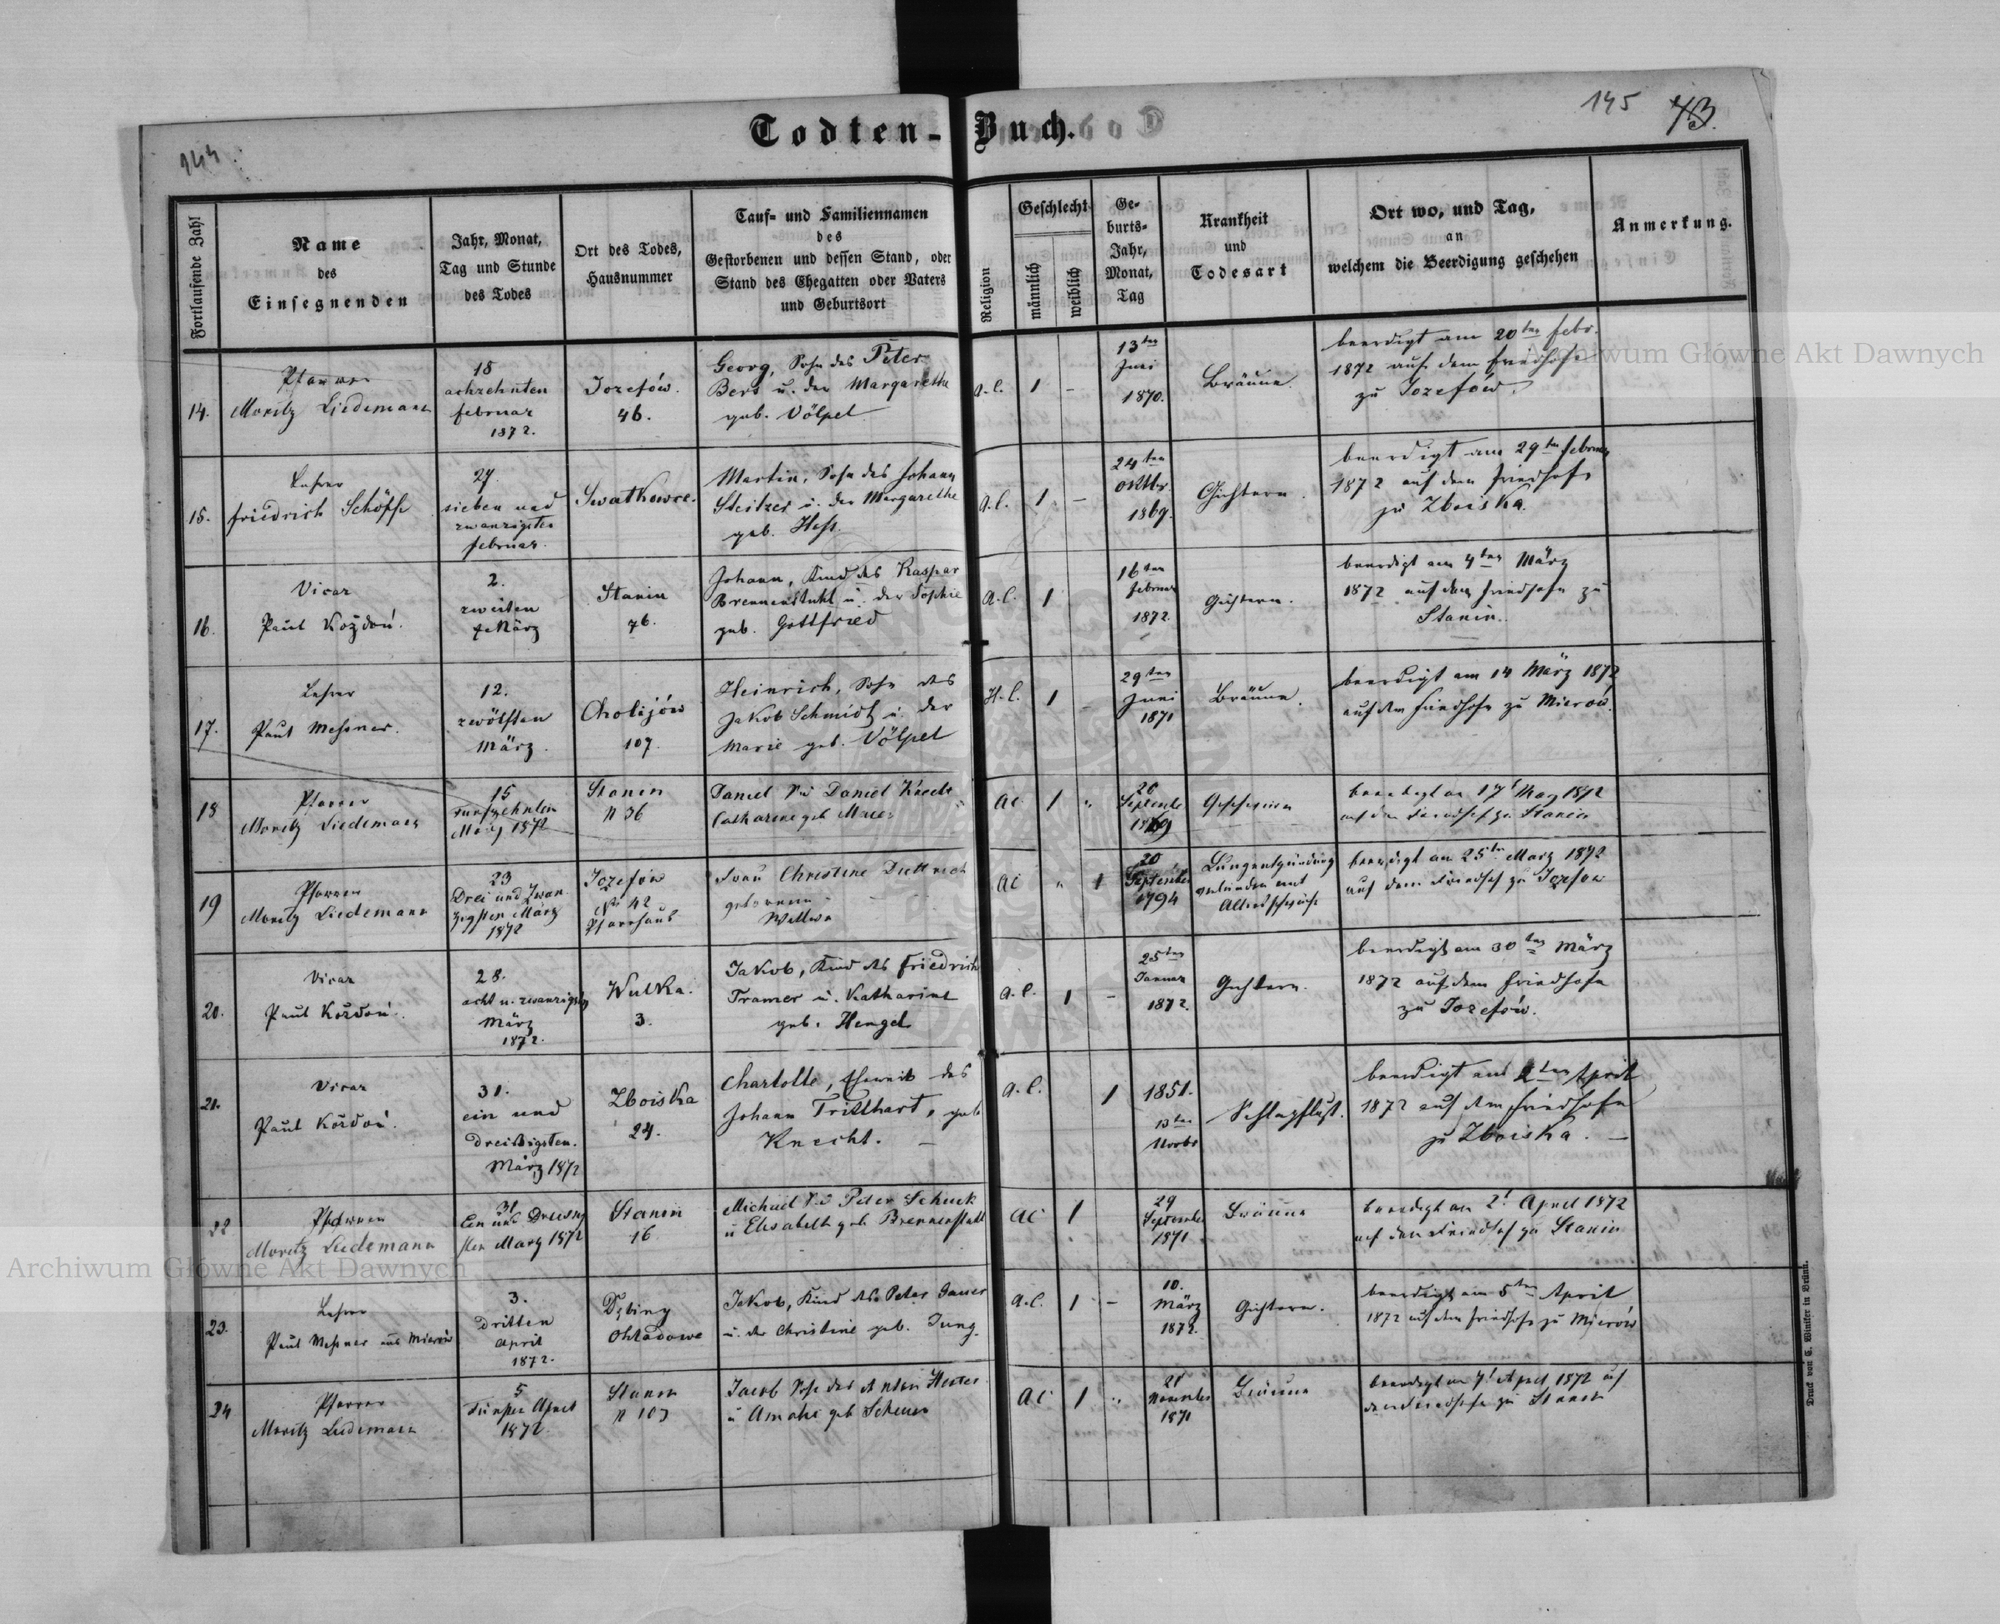 144
145
73.
Todten-Buch.
Fortlaufende Zahl
Name
des
Einsegnenden
Jahr, Monat,
Tag und Stunde
des Todes
Ort des Todes,
Hausnummer
Tauf- und Familiennamen
des
Gestorbenen und dessen Stand, oder
Stand des Ehegatten oder Vaters
und Geburtsort
Religion
Geschlecht
männlich
weiblich
Ge-
burts-
Jahr,
Monat,
Tag
Krankheit
und
Todesart
Ort wo, und Tag,
an
welchem die Beerdigung geschehen
Anmerkung.
14.
Pfarrer
Moritz Liedemann
18
achzehnten
Februar
1872.
Jozefów.
46.
Georg, Sohn des Peter
u. der Margaretha
geb. Völpel
a.c. 1 -
13ten
Juni
1870.
Bräune.
beerdigt am 20ten Febr.
1872 auf dem Friedhofe
zu Jozefów.
15.
Lehrer
Friedrich
27.
sieben und
zwanzigsten
Februar.
Martin, Sohn des Johann
u. der Margarethe
geb. Hess.
a.c. 1 -
24ten
Oktbr.
1869.
Gichtern.
beerdigt am 29ten Februar
1872 auf dem Friedhofe
zu Zboiska.
16.
Vicar
Paul Koždoń.
2.
zweiten
März
Stanin
76.
Johann, Kind des Kaspar
Brennenstuhl u. der Sophie
geb. Gottfried
a.c. 1
16ten
Februar
1872.
Gichtern.
beerdigt am 4ten März
1872 auf dem Friedhofe zu
Stanin.
17.
Lehrer
Paul Messner.
12.
zwölften
März.
Cholojów
107.
Heinrich, Sohn des
Jakob Schmidt u. der
Marie geb. Völpel
H.c. 1 -
29ten
Juni
1871
Bräune.
beerdigt am 14 März 1872
auf dem Friedhofe zu Mierów.
18
Pfarrer
Moritz Liedemann
15
Fünfzehnten
März 1872
Stanin
N 36
Daniel Daniel
Catharine geb
AC 1 "
20
September
beerdigt am 17t März 1872
auf dem Friedhof zu Stanin
19
Pfarrer
Moritz Liedemann
23
Drei und Zwan
zigsten März
1872
Jozefow
No 42
Pfarrhaus
Frau Christine Dittrich
geborenen
Witwe
AC " 1
20
September
1794
Lungentzündung
verbunden mit
Altersschwäche
beerdigt am 25ten März 1872
auf dem Friedhof zu Jozefow
20.
Vicar
Paul Koždoń.
28.
acht u. zwanzigsten
März
1872.
Wulka.
3.
Jakob, Kind des Friedrich
Tramer u. Katharine
geb. Hengel
a.c. 1 -
25ten
Januar
1872.
Gichtern.
beerdigt am 30ten März
1872 auf dem Friedhofe
zu Jozefów.
21.
Vicar
Paul Koždoń.
31.
ein und
dreißigsten.
März 1872
Zboiska
24.
Charlotte, Eheweib des
Johann Trillhart, geb
Knecht. -
a.c. 1
1851.
13ten
Novbr
Schlagfluß.
beerdigt am 2ten April
1872 auf dem Friedhofe
zu Zboiska. -
22
Pfarrer
Moritz Liedemann
31
Ein und Dreißig
sten März 1872
Stanin
16
Michael Peter Schuck
u Elisabeth geb Brennenstuhl
AC 1
29
September
1871
Bräune
beerdigt am 2t April 1872
auf dem Friedhof zu Stanin
23.
Lehrer
Paul Messner aus Mierów
3.
dritten
April
1872.
Jakob, Kind des Peter
u. der Christine geb. Jung.
a.c. 1 -
10.
März
1872.
Gichtern.
beerdigt am 5ten April
1872 auf dem Friedhofe zu Mierów
24
Pfarrer
Moritz Liedemann
5
Fünften April
1872
Stanin
N 107
Jacob Sohn des Anton
u Amalie geb Scheuer
AC 1 "
21
November
1871
Bräune
beerdigt am 7t April 1872 auf
dem Friedhofe zu Stanin
Druck von C. Winiker in Brünn.
Archiwum Główne Akt Dawnych
Archiwum Główne Akt Dawnych